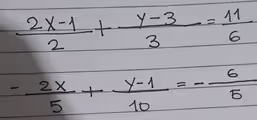 (2x-1)/2 + (y-3)/3 = 11/6
- 2x/5 + (y-1)/10 = - 6/5